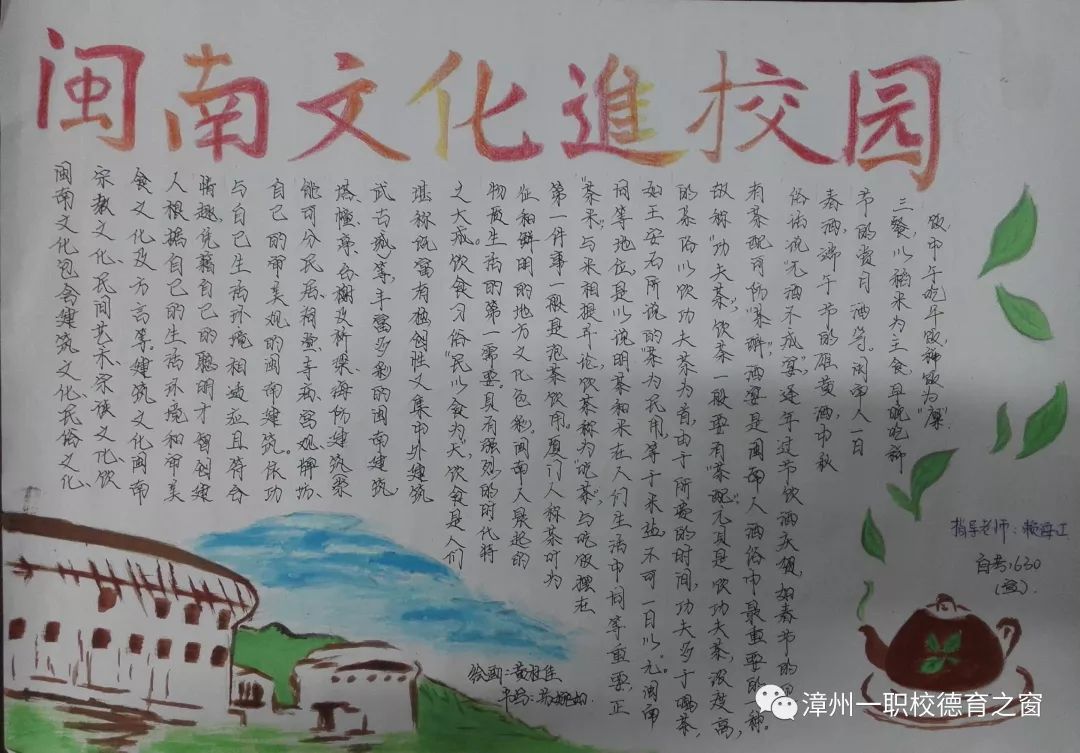 闽南文化進校园
闽南文化包含建筑文化、民俗文化、
宗教文化、民间艺术、宗族文化、饮
食文化及方言等。建筑文化闽南
人根据自己的生活环境和审美
情趣,凭藉自己的聪明才智创建
与自己生活环境相适应且符合
自己的审美观的闽南建筑。依功
能可分民居、祠堂、寺庙、宫观、牌坊、
塔幢、亭、台榭及桥梁、海防建筑聚
武古城等,丰富多彩的闽南建筑
堪称既富有独创性又集中外建筑
之大成。饮食习俗“民以食为天”,饮食是人们
物质生活的第一需要。具有强烈的时代特
征和鲜明的地方文化色彩。闽南人晨起的
第一件事一般是泡茶饮用。厦门人称茶叶为
“茶米”,与米相提并论,饮茶称为“吃茶”,与吃饭摆在
同等地位,足以说明茶和米在人们生活中同等重要,正
如王安石所说的“茶为民用,等于米盐,不可一日以无。闽南
的茶俗以饮功夫茶为首,由于所费的时间,功夫多于喝茶,
故称“功夫茶”,饮茶一般要有“茶配”尤其是饮功夫茶,浓度高,
有茶配可防“茶醉”。酒宴是闽南人酒俗中最重要的一种。
俗话说“无酒不成宴”逢年过节饮酒庆贺,如春节的
春酒,端午节的雄黄酒,中秋
节的赏月酒等。闽南人一日
三餐,以稻米为主食,早晚吃稀
饭,中午吃干饭,稀饭为“糜”
指导老师:赖
630
绘画:黄
书写:
漳州一职校德育之窗